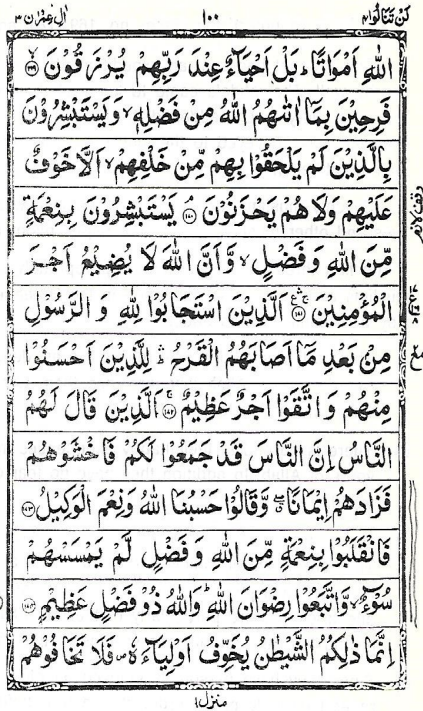 لَنْ تَنَالُوا ٤ ١٠٠ اٰلِ عِمْرٰن ٣
اللّٰهِ اَمْوَاتًا ؕ بَلْ اَحْيَآءٌ عِنْدَ رَبِّهِمْ يُرْزَقُوْنَ ۙ﴿۱۶۹﴾
فَرِحِيْنَ بِمَاۤ اٰتٰىهُمُ اللّٰهُ مِنْ فَضْلِهٖ ۙ وَيَسْتَبْشِرُوْنَ
بِالَّذِيْنَ لَمْ يَلْحَقُوْا بِهِمْ مِّنْ خَلْفِهِمْ ۙ اَلَّا خَوْفٌ
عَلَيْهِمْ وَلَا هُمْ يَحْزَنُوْنَ ۘ﴿۱۷۰﴾ يَسْتَبْشِرُوْنَ بِنِعْمَةٍ
مِّنَ اللّٰهِ وَفَضْلٍ ۙ وَّاَنَّ اللّٰهَ لَا يُضِيْعُ اَجْرَ
الْمُؤْمِنِيْنَ ﴿۱۷۱﴾ اَلَّذِيْنَ اسْتَجَابُوْا لِلّٰهِ وَ الرَّسُوْلِ
مِنْۢ بَعْدِ مَاۤ اَصَابَهُمُ الْقَرْحُ ؕ لِلَّذِيْنَ اَحْسَنُوْا
مِنْهُمْ وَ اتَّقَوْا اَجْرٌ عَظِيْمٌ ۚ﴿۱۷۲﴾ اَلَّذِيْنَ قَالَ لَهُمُ
النَّاسُ اِنَّ النَّاسَ قَدْ جَمَعُوْا لَكُمْ فَاخْشَوْهُمْ
فَزَادَهُمْ اِيْمَانًا ۖ وَّقَالُوْا حَسْبُنَا اللّٰهُ وَنِعْمَ الْوَكِيْلُ ﴿۱۷۳﴾
فَانْقَلَبُوْا بِنِعْمَةٍ مِّنَ اللّٰهِ وَفَضْلٍ لَّمْ يَمْسَسْهُمْ
سُوْٓءٌ ۙ وَّاتَّبَعُوْا رِضْوَانَ اللّٰهِ ؕ وَاللّٰهُ ذُوْ فَضْلٍ عَظِيْمٍ ﴿۱۷۴﴾
اِنَّمَا ذٰلِكُمُ الشَّيْطٰنُ يُخَوِّفُ اَوْلِيَآءَهٗ ۪ فَلَا تَخَافُوْهُمْ
منزل ۱
وقف لازم